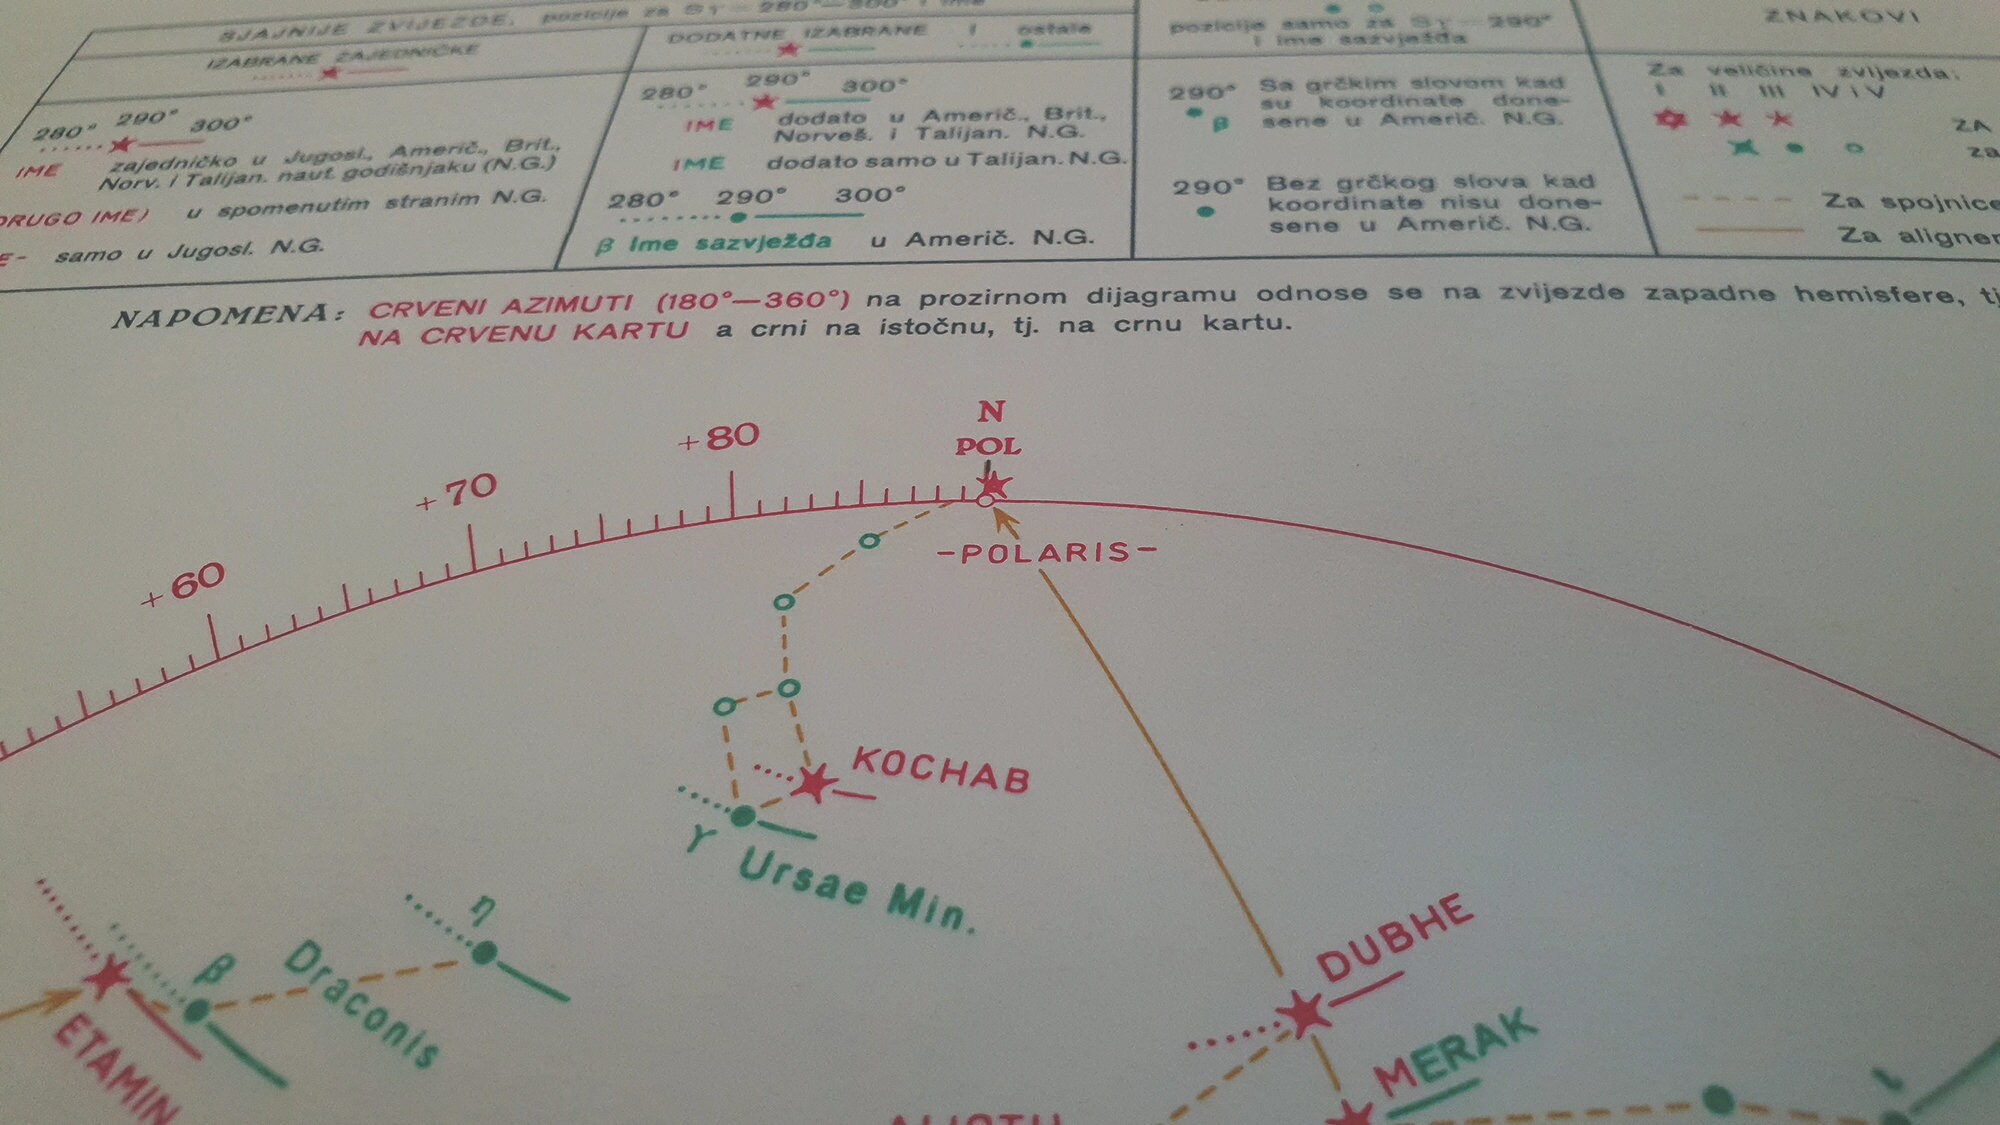 SJAJNIJE ZVIJEZDE, pozicije za Sγ — 280°—300° i ime
IZABRANE ZAJEDNIČKE
DODATNE IZABRANE I ostale
pozicije samo za Sγ — 290°
i ime sazvježđa
ZNAKOVI
280° 290° 300°
IME zajedničko u Jugosl., Americ., Brit.,
Norv. i Talijan. naut. godišnjaku (N.G.)
DRUGO IME) u spomenutim stranim N.G.
E- samo u Jugosl. N.G.
280° 290° 300°
IME dodato u Americ., Brit.,
Norveš. i Talijan. N.G.
IME dodato samo u Talijan. N.G.
280° 290° 300°
β Ime sazvježđa u Americ. N.G.
290° Sa grčkim slovom kad
su koordinate done-
β sene u Americ. N.G.
290° Bez grčkog slova kad
koordinate nisu done-
sene u Americ. N.G.
Za veličine zvijezda:
I II III IV i V
ZA
za
Za spojnice
Za aligner
NAPOMENA: CRVENI AZIMUTI (180°—360°) na prozirnom dijagramu odnose se na zvijezde zapadne hemisfere, tj
NA CRVENU KARTU a crni na istočnu, tj. na crnu kartu.
N
POL
+80
+70
+60
-POLARIS-
KOCHAB
γ Ursae Min.
η
β Draconis
ETAMIN
DUBHE
MERAK
ALIOTH
ι